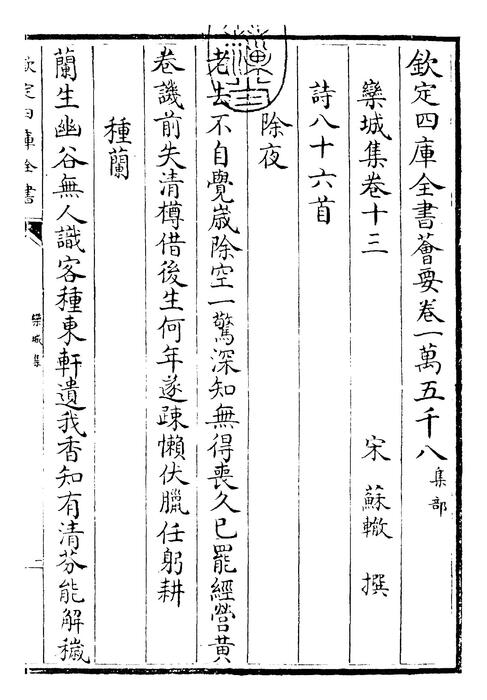 欽定四庫全書薈要卷一萬五千八 集部
欒城集卷十三 宋 蘇轍 撰
詩八十六首
除夜
老去不自覺歳除空一驚深知無得喪久已罷經營黄
卷譏前失清樽借後生何年遂疎懶伏臘任躬耕
種蘭
蘭生幽谷無人識客種東軒遺我香知有清芬能解穢
欽定四庫全書
欒城集